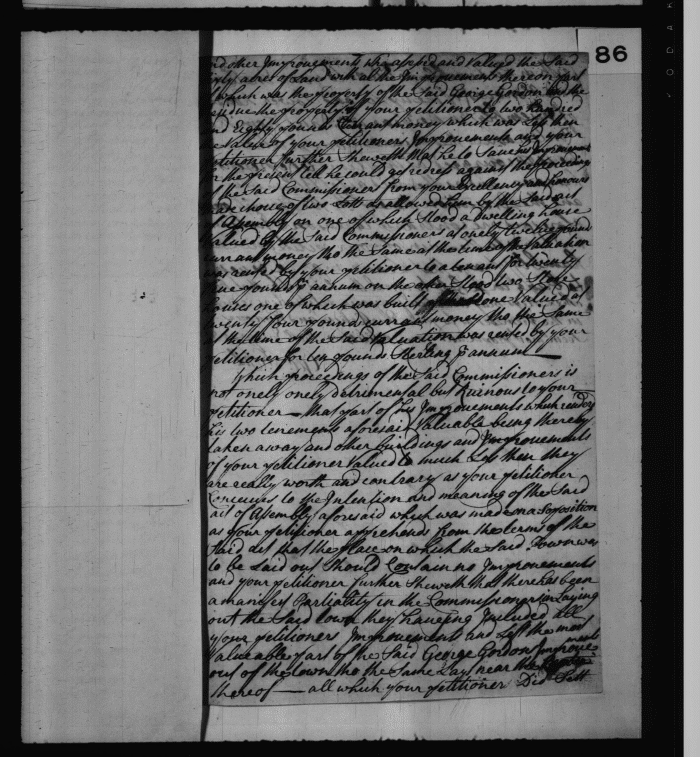 86
and other Improvements who apprised and Valued the Said
acres of Land with all the Improvements thereon part
which was the property of the Said George Gordon and the
residue the property of your petitioner to two hundred
and Eighty pounds Currant money which was Less then
Value of your petitioners Improvements and your
petitioner further Sheweth that he to Save his Improvements
the present till he could get redress against the proceedings
the Said Commissioners from your Excellency and honours
made choice of two Lotts as allowed him by the Said act
Assembly on one of which Stood a dwelling house
Valued by the Said Commissioners at onely twelve pound
Currant money tho the Same at the time of the Valuation
was rented by your petitioner to a tenant for twenty
pounds annum on the other Stood two Store
houses one of which was built of Valued at
twenty four pounds currant money tho the Same
the time of the Said Valuation was rented by your
petitioner for ten pounds Sterling annum
Which proceedings of the Said Commissioners is
not onely onely detrimental but Ruinous to your
petitioner — that part of his Improvements which renders
his two tenements aforesaid Valuable being thereby
taken away and other buildings and Improvements
of your petitioner Valued to much Less then they
are really worth and contrary as your petitioner
Conceives to the Intention and meaning of the Said
act of Assembly aforesaid which was made on a Soposition
as your petitioner apprehends from the terms of the
Said act that the place on which the Said Town was
to be Laid out Should Contain no Improvements
and your petitioner further Sheweth that there has been
a manifest Partiality in the Commissioners in Laying
out the Said town they haveing Included all
your petitioners Improvements and Left the most
Valueable part of the Said George Gordons Improvements
out of the town tho the Same Lay near the
thereof — all which your petitioner Did Sett